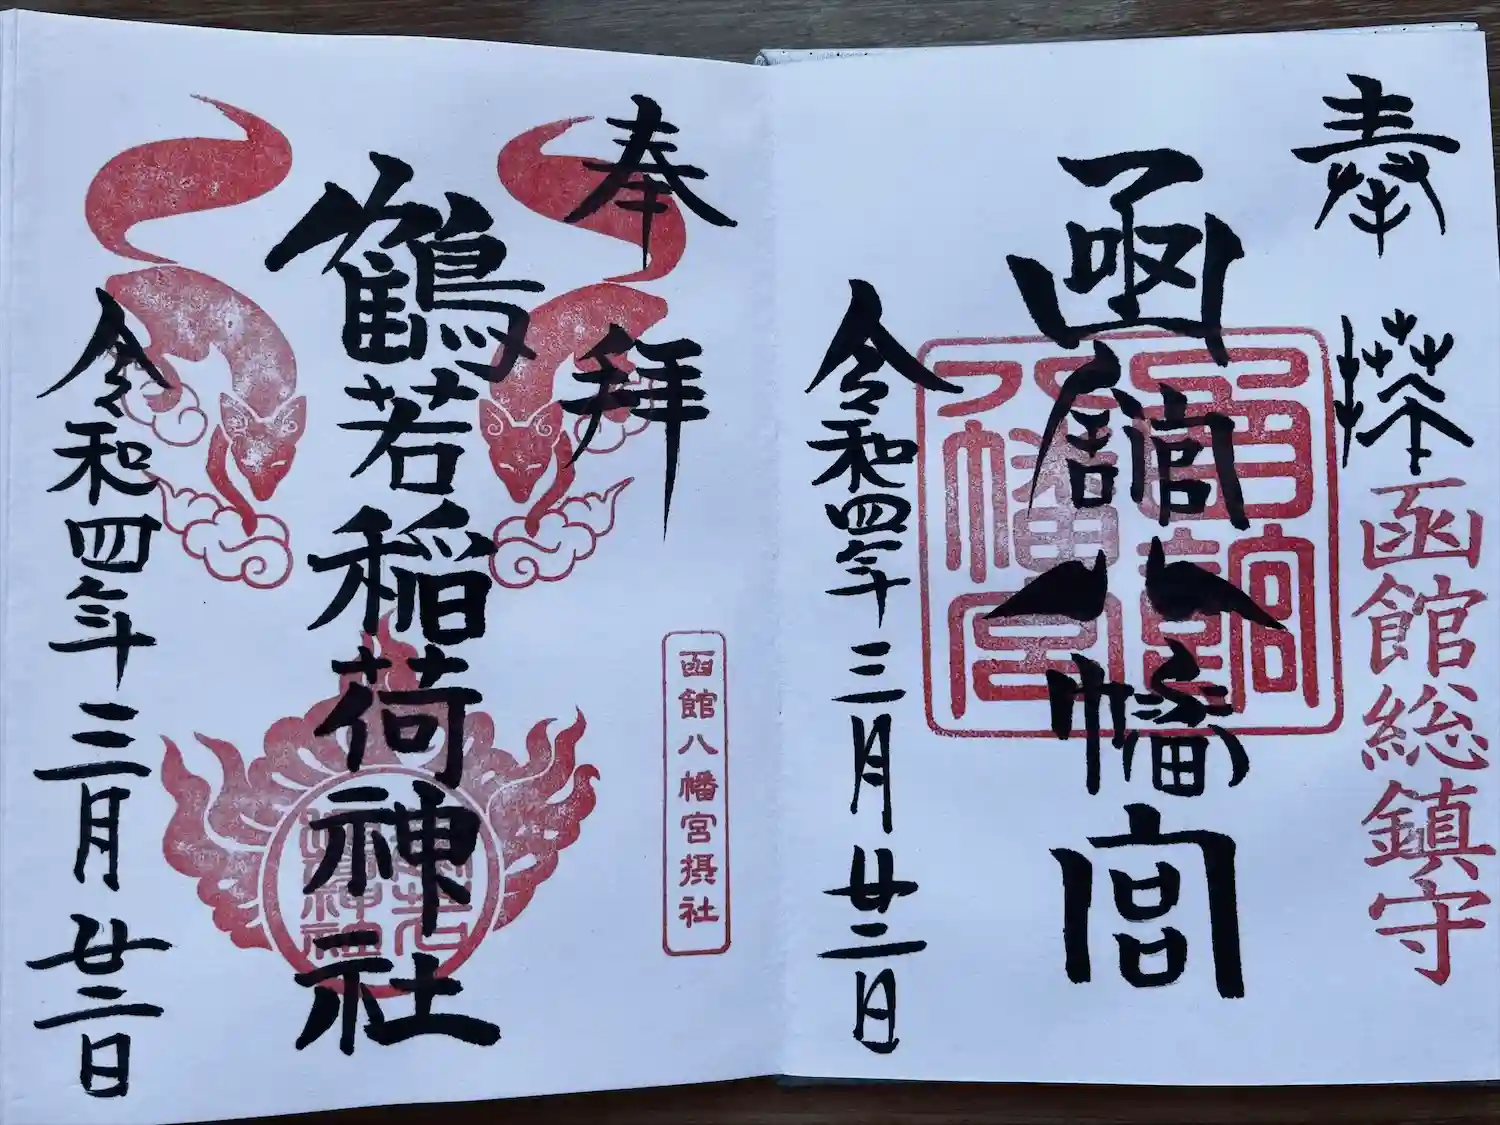 奉拝
函館総鎮守
函館八幡宮
令和四年三月廿二日
奉拝
函館八幡宮摂社
鶴若稲荷神社
令和四年三月廿二日
函館八幡宮